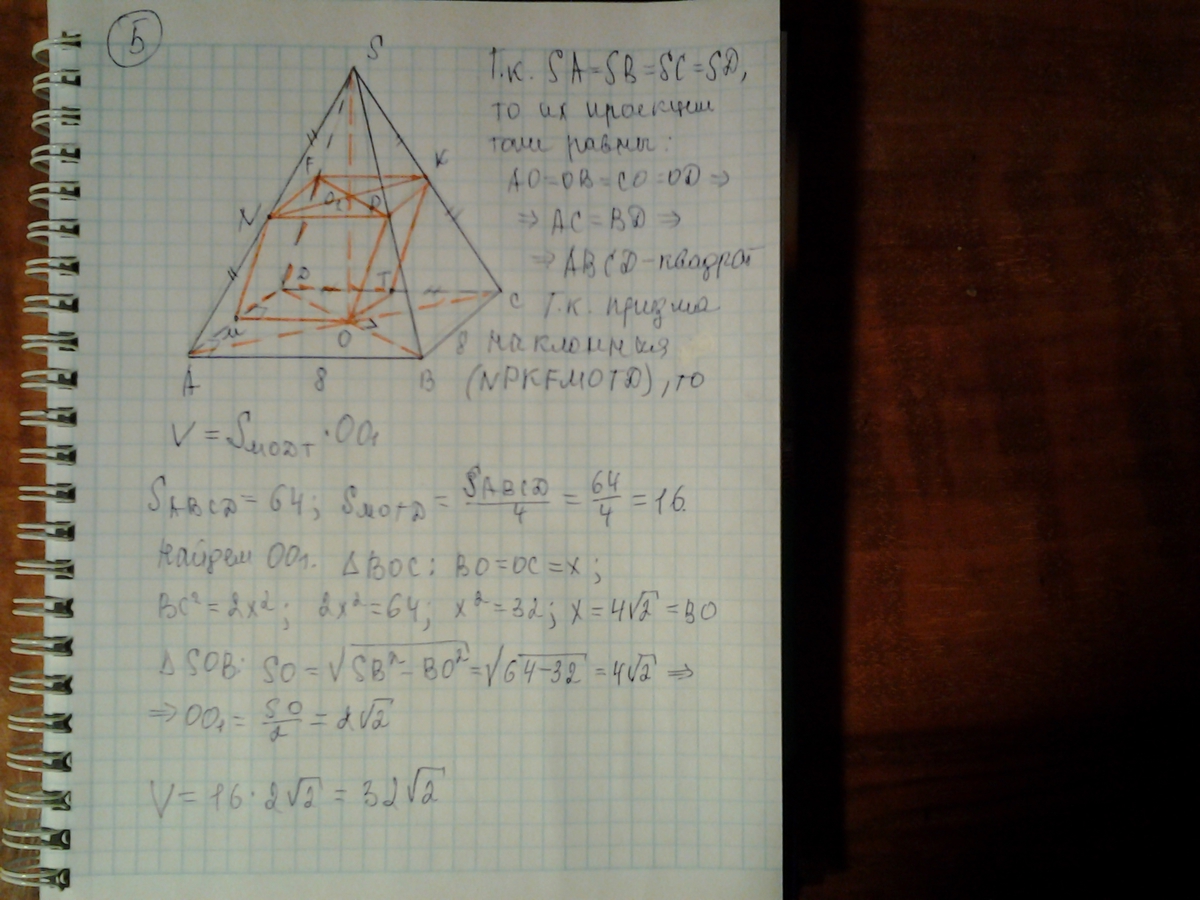 5
S
F
K
N
O₁
P
D
T
C
M
O
8
A
8
B
Т.к. SA=SB=SC=SD,
то их проекции
тоже равны:
AO=OB=CO=OD ⇒
⇒ AC=BD ⇒
⇒ ABCD-квадрат
Т.к. призма
наклонная
(NPKFMOTD), то
V = S_MODT · OO₁
S_ABCD = 64; S_MOTD = S_ABCD/4 = 64/4 = 16.
Найдем OO₁. ΔBOC: BO=OC=x;
BC² = 2x²; 2x²=64; x²=32; x=4√2=BO
ΔSOB: SO = √(SB²-BO²) = √(64-32) = 4√2 ⇒
⇒ OO₁ = SO/2 = 2√2
V = 16 · 2√2 = 32√2